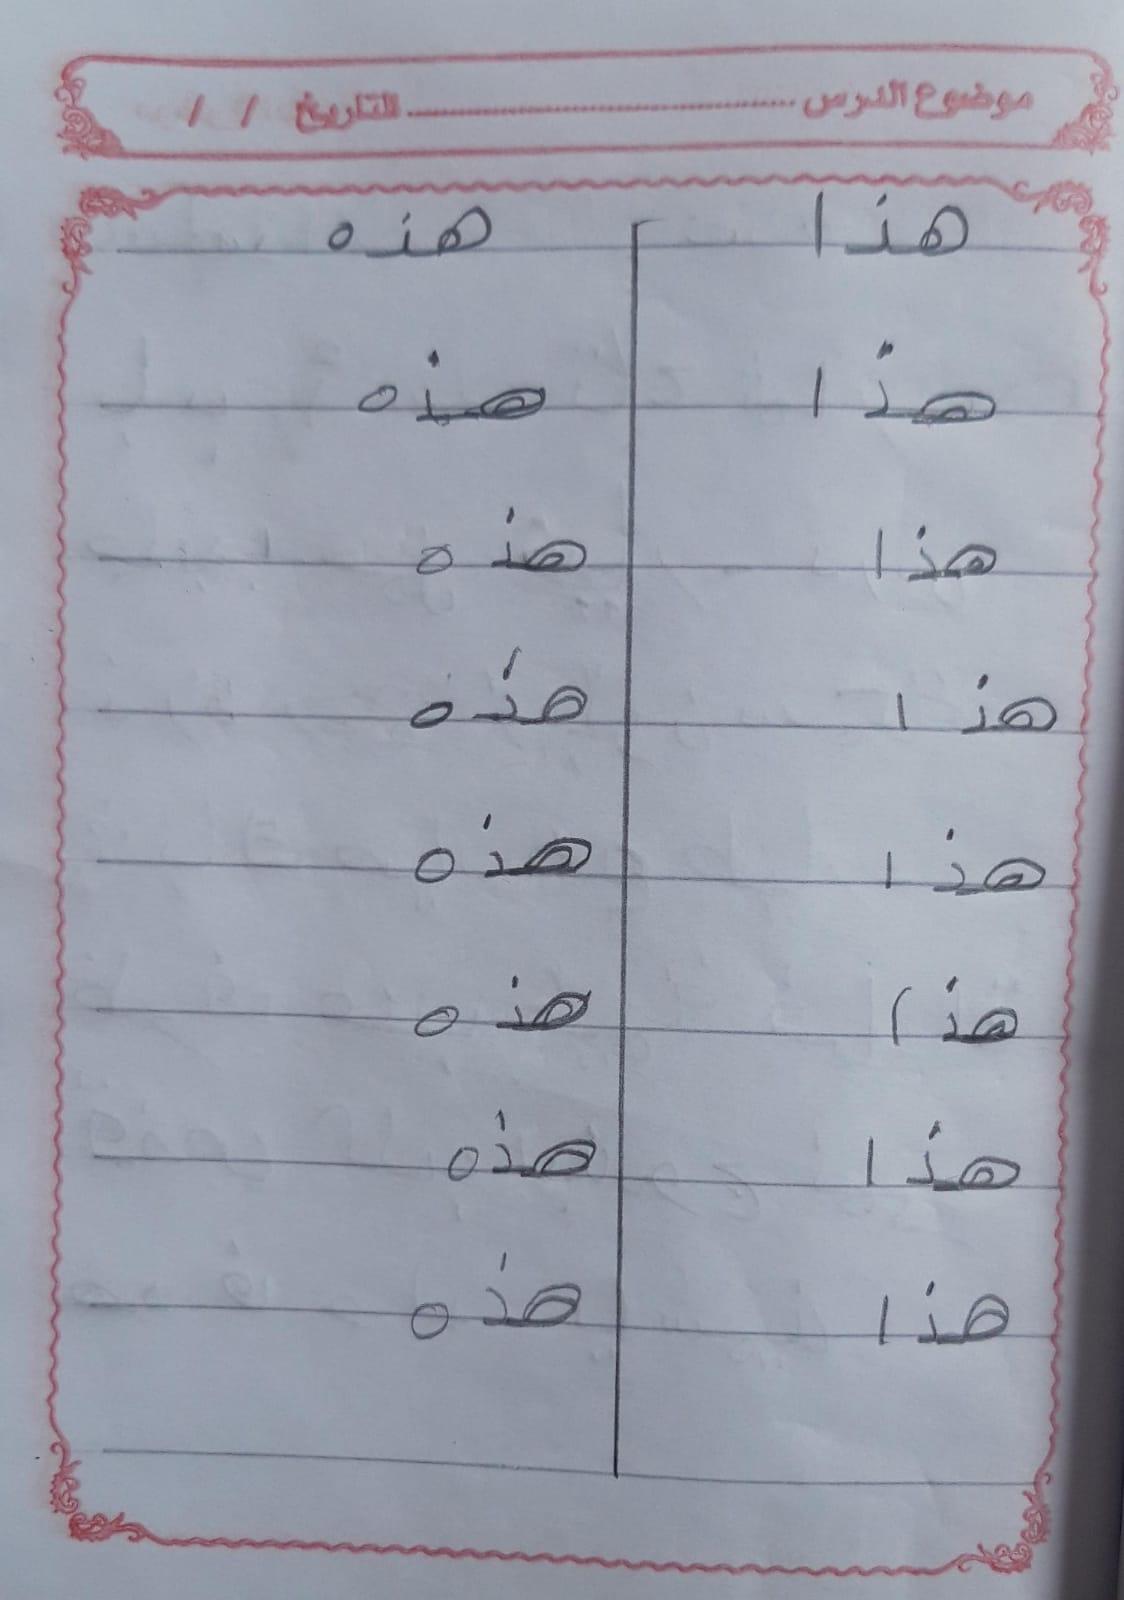 موضوع الدرس ........................ التاريخ / /
هذا هذه
هذا هذه
هذا هذه
هذا هذه
هذا هذه
هذا هذه
هذا هذه
هذا هذه